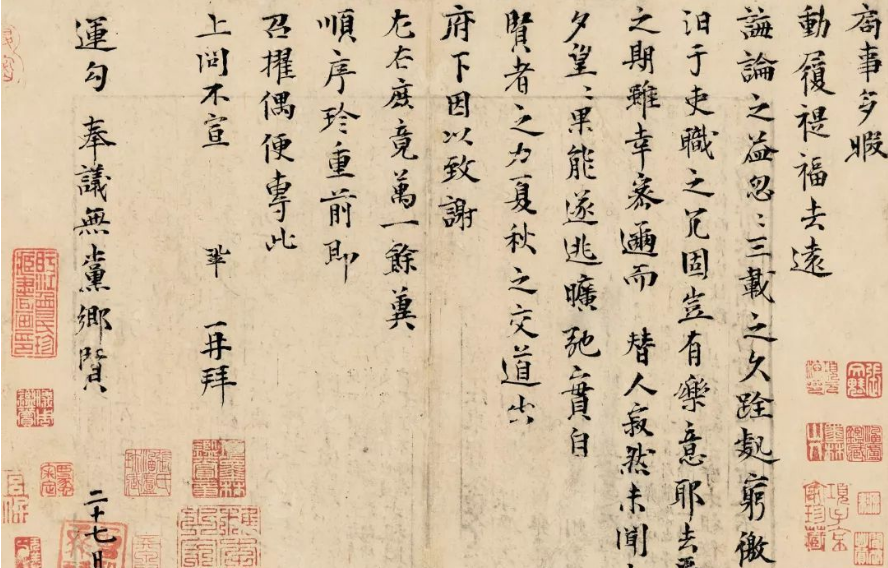 局事多暇
動履禔福去遠
誨論之益忽〻三載之久跧處窮徼
汩于吏職之冗固豈有樂意耶去
之期雖幸密邇而 替人寂然未聞
夕望〻果能遂逃曠弛實自
賢者之力夏秋之交道出
府下因以致謝
左右庶竟萬一餘冀
順序珍重前即
召擢偶便專此
上問不宣 鞏 再拜
運勾 奉議無黨鄉賢 二十七日